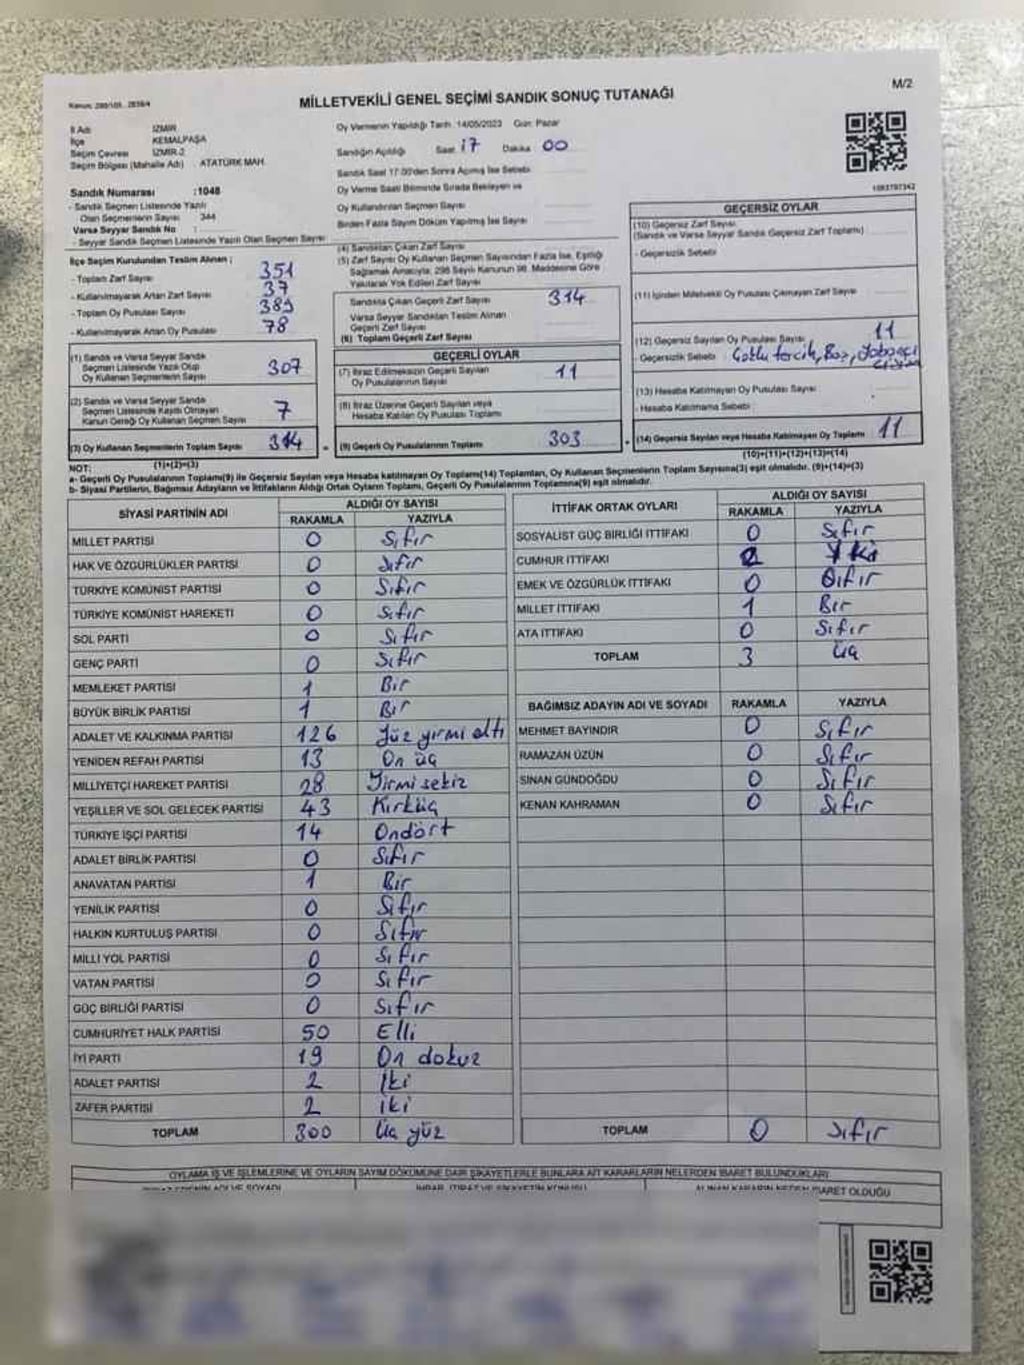 M/2
MİLLETVEKİLİ GENEL SEÇİMİ SANDIK SONUÇ TUTANAĞI
İl Adı İZMİR
İlçe KEMALPAŞA
Seçim Çevresi İZMİR-2
Seçim Bölgesi (Mahalle Adı) ATATÜRK MAH.
Sandık Numarası :1048
- Sandık Seçmen Listesinde Yazılı
Olan Seçmenlerin Sayısı 344
Varsa Seyyar Sandık No :
- Seyyar Sandık Seçmen Listesinde Yazılı Olan Seçmen Sayısı
Oy Vermenin Yapıldığı Tarih: 14/05/2023 Gün: Pazar
Sandığın Açıldığı Saat 17 Dakika 00
Sandık Saat 17:00'den Sonra Açılmış İse Sebebi
Oy Verme Saati Bitiminde Sırada Bekleyen ve
Oy Kullandırılan Seçmen Sayısı
Birden Fazla Sayım Döküm Yapılmış İse Sayısı
İlçe Seçim Kurulundan Teslim Alınan ;
- Toplam Zarf Sayısı 351
- Kullanılmayarak Artan Zarf Sayısı 37
- Toplam Oy Pusulası 389
- Kullanılmayarak Artan Oy Pusulası 78
(1) Sandık ve Varsa Seyyar Sandık
Seçmen Listesinde Yazılı Olup
Oy Kullanan Seçmenlerin Sayısı 307
(2) Sandık ve Varsa Seyyar Sandık
Seçmen Listesinde Kayıtlı Olmayan
Kanun Gereği Oy Kullanan Seçmen Sayısı 7
(3) Oy Kullanan Seçmenlerin Toplam Sayısı 314
(1)+(2)=(3)
(4) Sandıktan Çıkan Zarf Sayısı
(5) Zarf Sayısı Oy Kullanan Seçmen Sayısından Fazla İse, Eşitliği
Sağlamak Amacıyla; 298 Sayılı Kanunun 98. Maddesine Göre
Yakılarak Yok Edilen Zarf Sayısı
Sandıkta Çıkan Geçerli Zarf Sayısı 314
Varsa Seyyar Sandıktan Teslim Alınan
Geçerli Zarf Sayısı
(6) Toplam Geçerli Zarf Sayısı
GEÇERLİ OYLAR
(7) İtiraz Edilmeksizin Geçerli Sayılan
Oy Pusulalarının Sayısı 11
(8) İtiraz Üzerine Geçerli Sayılan veya
Hesaba Katılan Oy Pusulası Toplamı
(9) Geçerli Oy Pusulalarının Toplamı 303
GEÇERSİZ OYLAR
(10) Geçersiz Zarf Sayısı
(Sandık ve Varsa Seyyar Sandık Geçersiz Zarf Toplamı)
- Geçersizlik Sebebi
(11) İçinden Milletvekili Oy Pusulası Çıkmayan Zarf Sayısı
(12) Geçersiz Sayılan Oy Pusulası Sayısı 11
- Geçersizlik Sebebi Çoklu tercih, Boş, Yabancı
(13) Hesaba Katılmayan Oy Pusulası Sayısı
- Hesaba Katılmama Sebebi
(14) Geçersiz Sayılan veya Hesaba Katılmayan Oy Toplamı 11
(10)+(11)+(12)+(13)=(14)
NOT:
a- Geçerli Oy Pusulalarının Toplamı(9) ile Geçersiz Sayılan veya Hesaba katılmayan Oy Toplamı(14) Toplamları, Oy Kullanan Seçmenlerin Toplam Sayısına(3) eşit olmalıdır. (9)+(14)=(3)
b- Siyasi Partilerin, Bağımsız Adayların ve İttifakların Aldığı Ortak Oyların Toplamı, Geçerli Oy Pusulalarının Toplamına(9) eşit olmalıdır.
SİYASİ PARTİNİN ADI ALDIĞI OY SAYISI
RAKAMLA YAZIYLA
MİLLET PARTİSİ 0 Sıfır
HAK VE ÖZGÜRLÜKLER PARTİSİ 0 Sıfır
TÜRKİYE KOMÜNİST PARTİSİ 0 Sıfır
TÜRKİYE KOMÜNİST HAREKETİ 0 Sıfır
SOL PARTİ 0 Sıfır
GENÇ PARTİ 0 Sıfır
MEMLEKET PARTİSİ 1 Bir
BÜYÜK BİRLİK PARTİSİ 1 Bir
ADALET VE KALKINMA PARTİSİ 126 Yüz yirmi altı
YENİDEN REFAH PARTİSİ 13 On üç
MİLLİYETÇİ HAREKET PARTİSİ 28 Yirmi sekiz
YEŞİLLER VE SOL GELECEK PARTİSİ 43 Kırküç
TÜRKİYE İŞÇİ PARTİSİ 14 Ondört
ADALET BİRLİK PARTİSİ 0 Sıfır
ANAVATAN PARTİSİ 1 Bir
YENİLİK PARTİSİ 0 Sıfır
HALKIN KURTULUŞ PARTİSİ 0 Sıfır
MİLLİ YOL PARTİSİ 0 Sıfır
VATAN PARTİSİ 0 Sıfır
GÜÇ BİRLİĞİ PARTİSİ 0 Sıfır
CUMHURİYET HALK PARTİSİ 50 Elli
İYİ PARTİ 19 On dokuz
ADALET PARTİSİ 2 İki
ZAFER PARTİSİ 2 iki
TOPLAM 300 Üç yüz
İTTİFAK ORTAK OYLARI ALDIĞI OY SAYISI
RAKAMLA YAZIYLA
SOSYALİST GÜÇ BİRLİĞİ İTTİFAKI 0 Sıfır
CUMHUR İTTİFAKI 2 İki
EMEK VE ÖZGÜRLÜK İTTİFAKI 0 Sıfır
MİLLET İTTİFAKI 1 Bir
ATA İTTİFAKI 0 Sıfır
TOPLAM 3 Üç
BAĞIMSIZ ADAYIN ADI VE SOYADI RAKAMLA YAZIYLA
MEHMET BAYINDIR 0 Sıfır
RAMAZAN UZUN 0 Sıfır
SİNAN GÜNDOĞDU 0 Sıfır
KENAN KAHRAMAN 0 Sıfır
TOPLAM 0 Sıfır
OYLAMA İŞ VE İŞLEMLERİNE VE OYLARIN SAYIM DÖKÜMÜNE DAİR ŞİKAYETLERLE BUNLARA AİT KARARLARIN NELERDEN İBARET BULUNDUKLARI